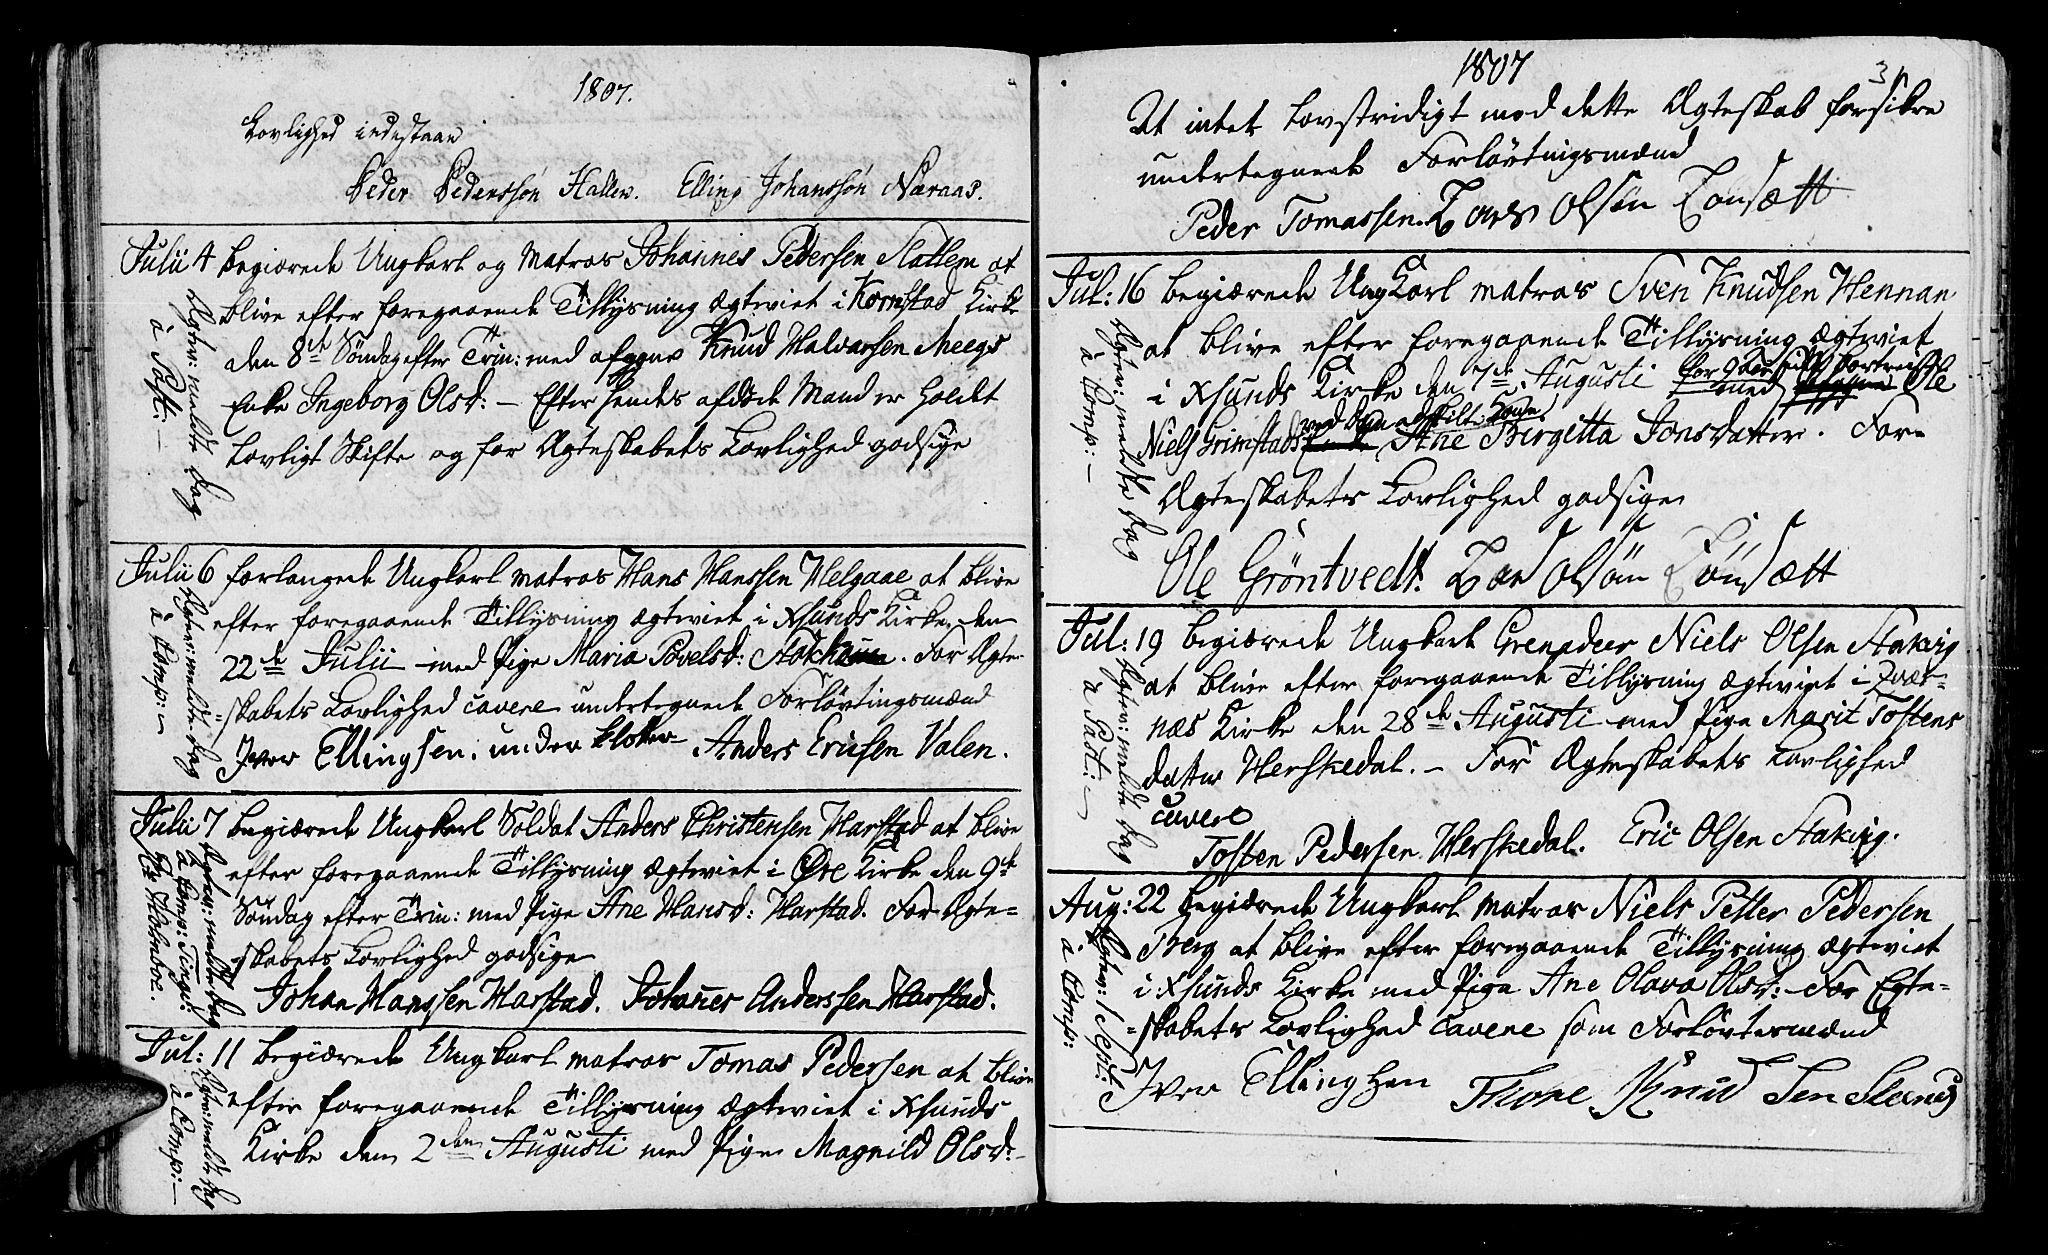 1807.
Lovlighed indestaar
Peder Pederssøn Hallen. Elling Johanssøn Næraas.
Julii 4 begiærede Ungkarl og Matros Johannes Pedersen Slatlem at
blive efter foregaaende Tillysning ægteviet i Kornstad Kirke
den 8de Søndag efter Trin: med afggne Knud Halvarsen Meegs
Enke Ingeborg Olsd: – Efter hendes afdøde Mand er holdt
lovligt Skifte og for Ægteskabets Lovlighed godsige
Ægtev: meldte Dag
à Past: –
Julii 6 forlangede Ungkarl Matros Hans Hanssen Helgaae at blive
efter foregaaende Tillysning ægteviet i Xsunds Kirke den
22de Julii med Pige Maria Povelsd: . For Ægte-
skabets Lovlighed cavere undertegnede Forlovtingsmænd
Iver Ellingsen, under Klokker Anders Ericsen Valen.
Ægtev: meldte Dag
à Comp: –
Julii 7 begiærede Ungkarl Soldat Anders Christensen Harstad at blive
efter foregaaende Tillysning ægteviet i Øre Kirke den 9de
Søndag efter Trin: med Pige Ane Hansd: Harstad. For Ægte=
skabets Lovlighed godsige
Johan Hanssen Harstad. Johanes Anderssen Harstad.
Ægtev: meldte Dag
Jul: 11 begiærede Ungkarl Matros Tomas Pedersen at blive
efter foregaaende Tillysning ægteviet i Xsunds
Kirke den 2den Augusti med Pige Magnild Olsd:
Ægtev: meldte Dag
à Comp: –
1807
At intet Lovstridigt mod dette Ægteskab forsikre
undertegnede Forlovtingsmænd
Peder Tomassen. Lars Olsøn Tonsætt
Jul: 16 begiærede Ungkarl Matros Sven Knudsen Hennan
at blive efter foregaaende Tillysning ægteviet
i Xsunds Kirke den 7de Augusti med Ole
Niels Grimstads Ane Birgitta Jonsdatter. For
Ægteskabets Lovlighed godsige
Ole Gröntvedt. Lars Olsön Tönsætt
Ægtev: meldte Dag
à Comp: –
Jul: 19 begiærede Ungkarl Grenadeer Niels Olsen Stakvig
at blive efter foregaaende Tillysning ægteviet i Qvær-
næs Kirke den 28de Augusti med Pige Marit Tostens
datter Herskedal. – For Ægteskabets Lovlighed
cavere
Tosten Pedersen Herskedal. Eric Olsen Stakvig.
Ægtev: meldte Dag
à Past: –
Aug: 22 begiærede Ungkarl Matros Niels Petter Pedersen
Berg at blive efter foregaaende Tillysning ægteviet
i Xsunds Kirke med Pige Ane Olava Olsd: For Egte=
=skabets Lovlighed cavere som Forlovtesmænd
Iver Ellinghen Thore Knud Sen
Ægtev: Sept:
à Comp: